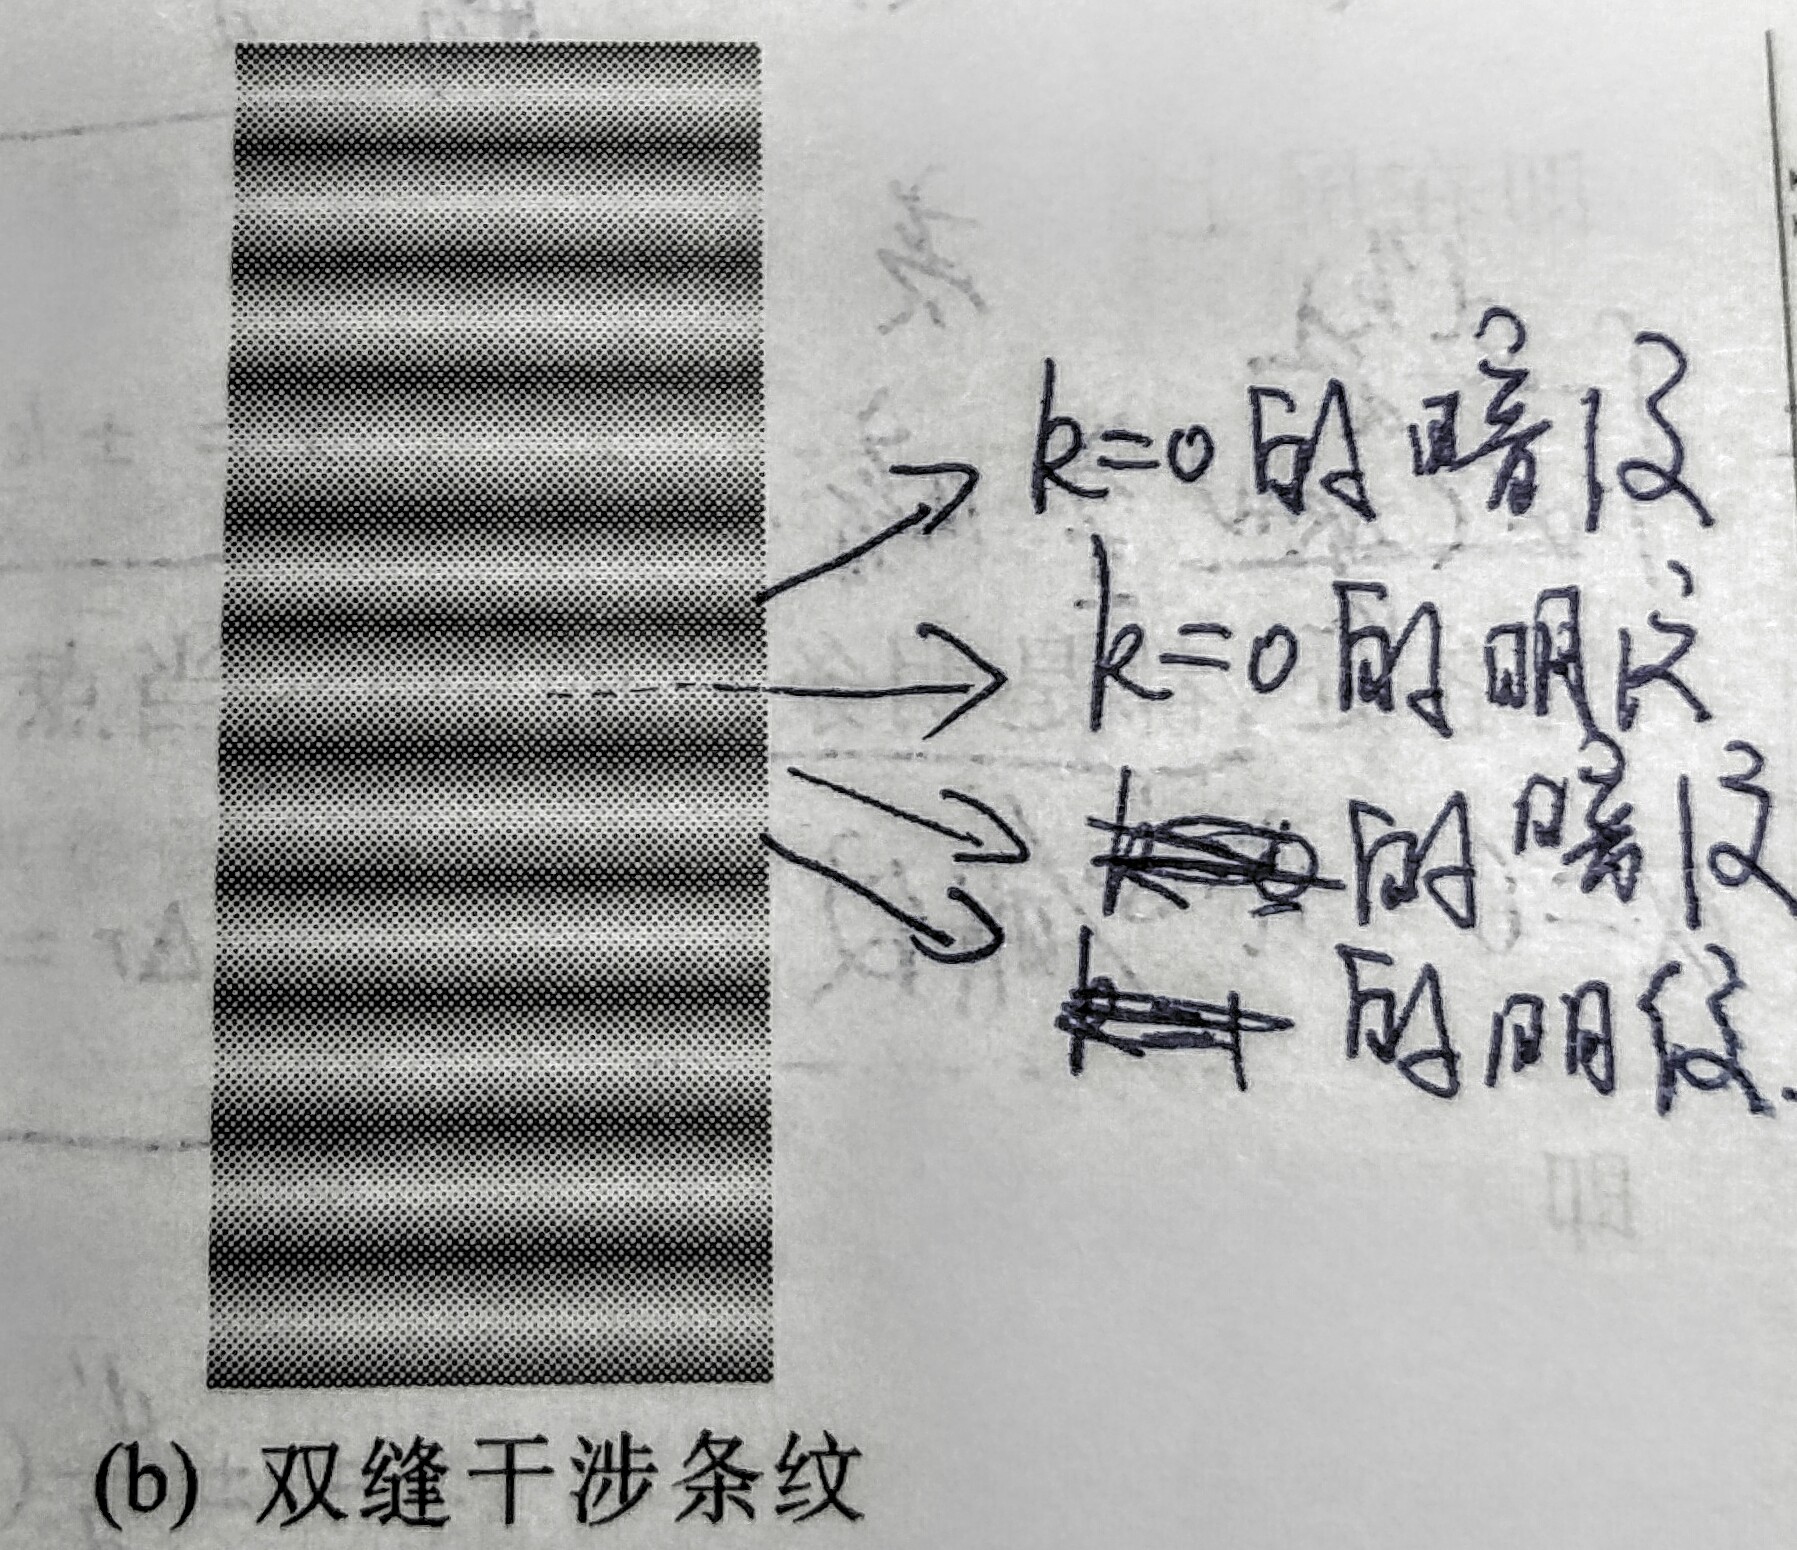 k=0的暗纹
k=0的明纹
的暗纹
的明纹.
(b) 双缝干涉条纹